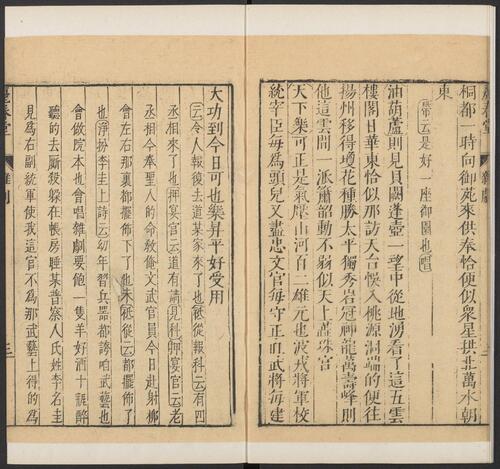 麗春堂 雜劇
桐都一時向御苑來供奉恰便似衆星拱北萬水朝
東
帶云是好一座御園也唱
油葫蘆則見貝闕蓬壺一望中從地湧看了這五雲
樓閣日華東恰似那訪天台悞入桃源洞端的便往
揚州移得瓊花種勝太平獨秀岩冠神龍萬壽峰則
他這雲間一派簫韶動不弱似天上蕊珠宮
天下樂可正是氣壓山河百二雄元也波戎將軍校
統宰臣每爲頭兒又盡忠文官每守正直武將每建
大功到今日可也樂昇平好受用
云令人報復去道某家來了也祗從報科云有四
丞相來了也押宴官云道有請見科押宴官云老
丞相今奉聖人的命教俺文武官員今日赴射柳
會左右那裏都擺佈下了也未祗從云都擺佈了
也淨扮李圭上詩云幼年習兵器都誇咱武藝也
會做院本也會唱雜劇要飽一隻羊好酒十瓶醉
聽的去廝殺躲在帳房睡某普察人氏姓李名圭
見爲右副統軍使我這官不爲那武藝上得的爲
麗春堂 雜劇 三